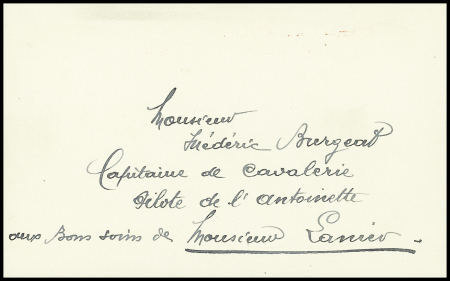 Monsieur
Frédéric Burgeat
Capitaine de Cavalerie
Pilote de l'Antoinette
aux Bons soins de Monsieur